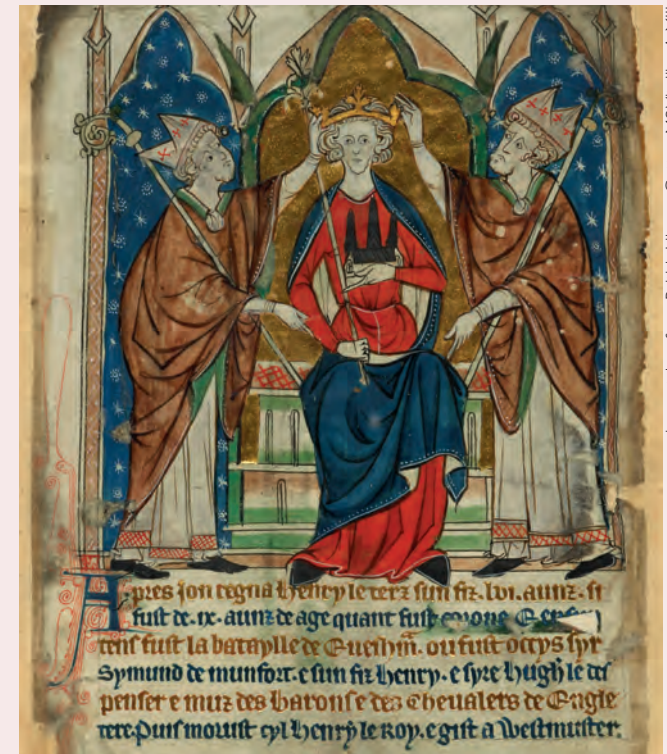 Apres Jon regna Henry le terz sun fiz. lvi. aunz. si
fust de .ix. aunz de age quant fust
tens fust la bataylle de ou fust occys syr
Symund de munfort. e sun fiz Henry. e syre Hugh le des
penser e muz des barons e des chevalers de Engle
tere. Puis morust cyl Henry le Roy. e gist a Westmuster.